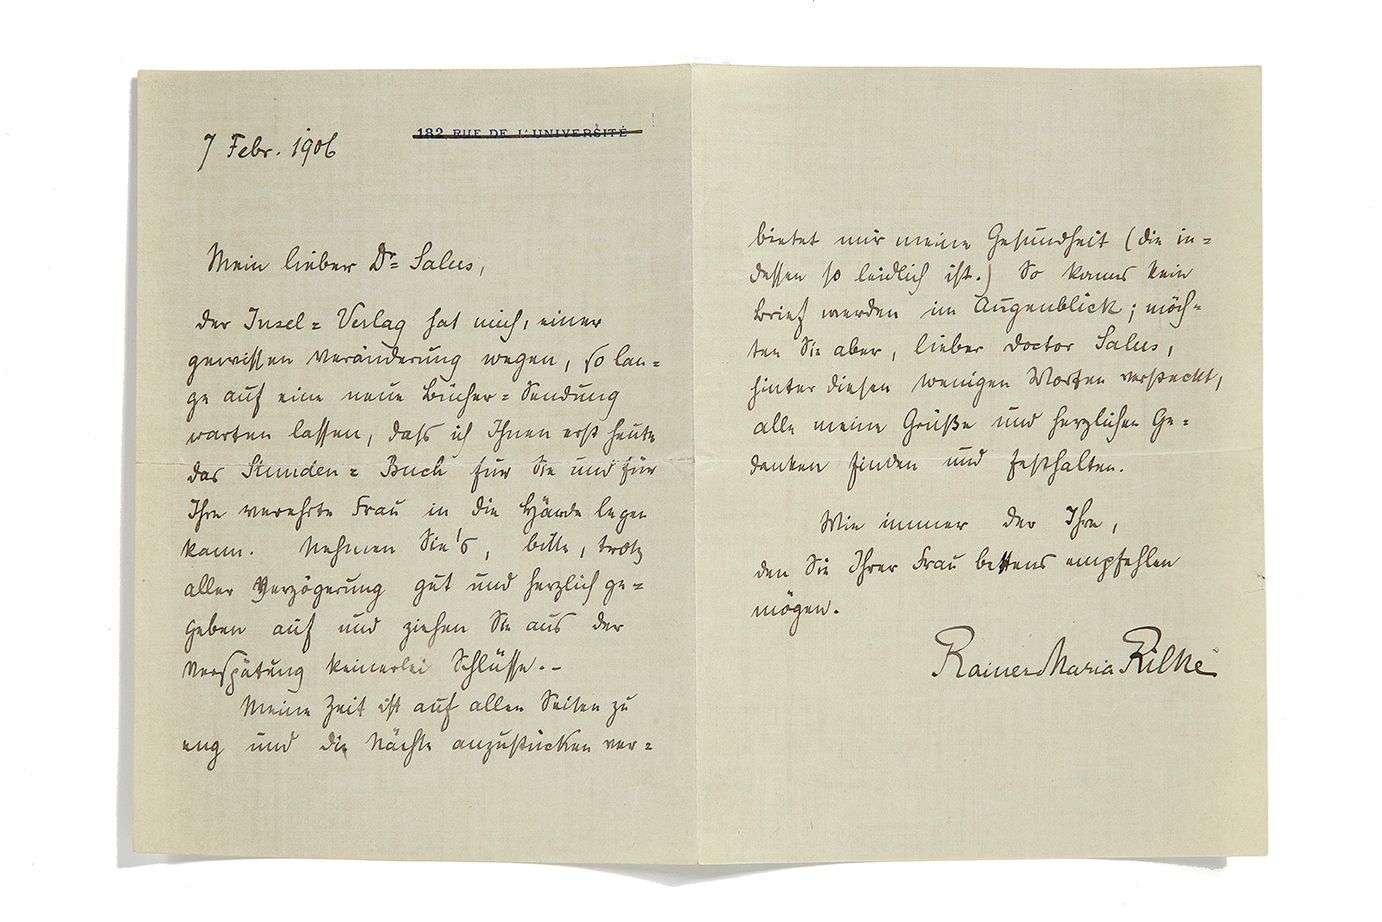 7 Febr. 1906
182 RUE DE L'UNIVERSITÉ
Mein lieber Dr= Salus,
der Insel= Verlag hat mich, einer
gewissen Veränderung wegen, so lan=
ge auf eine neue Bücher= Sendung
warten lassen, dass ich Ihnen erst heute
das Stunden= Buch für Sie und für
Ihre verehrte Frau in die Hände legen
kann. Nehmen Sie's, bitte, trotz
aller Verzögerung gut und herzlich ge=
geben auf und ziehen Sie aus der
Verspätung keinerlei Schlüsse.–
Meine Zeit ist auf allen Seiten zu
eng und die Nächte anzustücken ver=
bietet mir meine Gesundheit (die in=
dessen so leidlich ist.) So kanns kein
Brief werden im Augenblick; möch=
ten Sie aber, lieber Doctor Salus,
hinter diesen wenigen Worten versteckt,
alle meine Grüße und herzlichen Ge=
danken finden und festhalten.
Wie immer der Ihre,
den Sie Ihrer Frau bestens empfehlen
mögen.
Rainer Maria Rilke